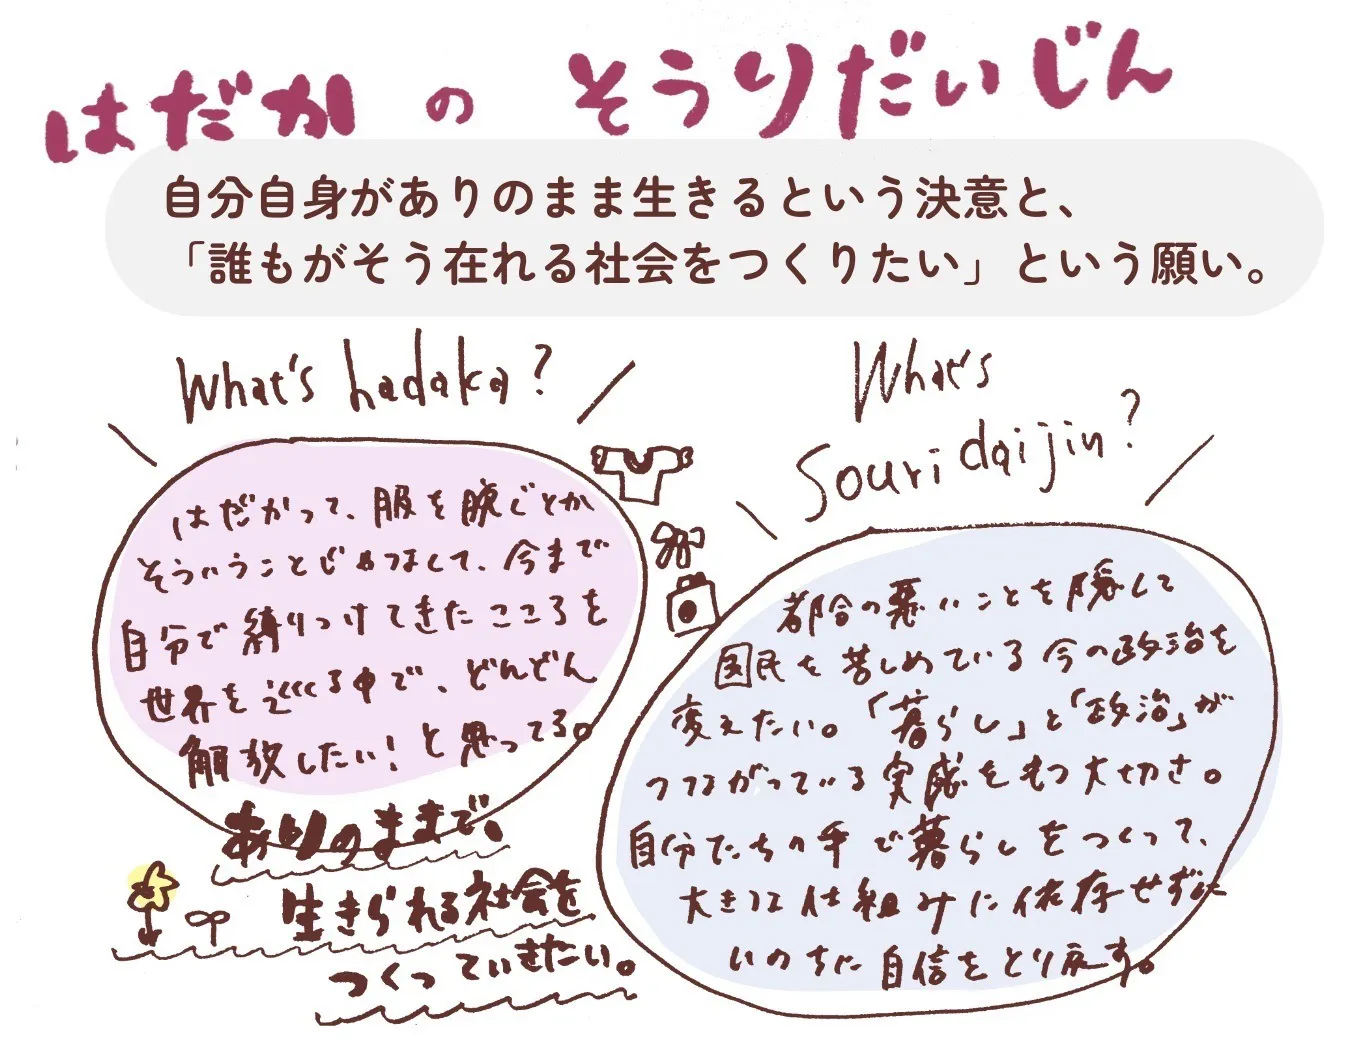 はだかのそうりだいじん
自分自身がありのまま生きるという決意と、
「誰もがそう在れる社会をつくりたい」という願い。
What's hadaka?
はだかって、服を脱ぐとか
そういうことじゃなくて、今まで
自分で縛りつけてきたこころを
世界を巡る中で、どんどん
解放したい！と思ってる。
ありのままで、
生きられる社会を
つくっていきたい。
What's
Souri daijin?
都合の悪いことを隠して
国民を苦しめている今の政治を
変えたい。「暮らし」と「政治」が
つながっている実感をもつ大切さ。
自分たちの手で暮らしをつくって、
大きな仕組みに依存せずに
いのちに自信をとり戻す。